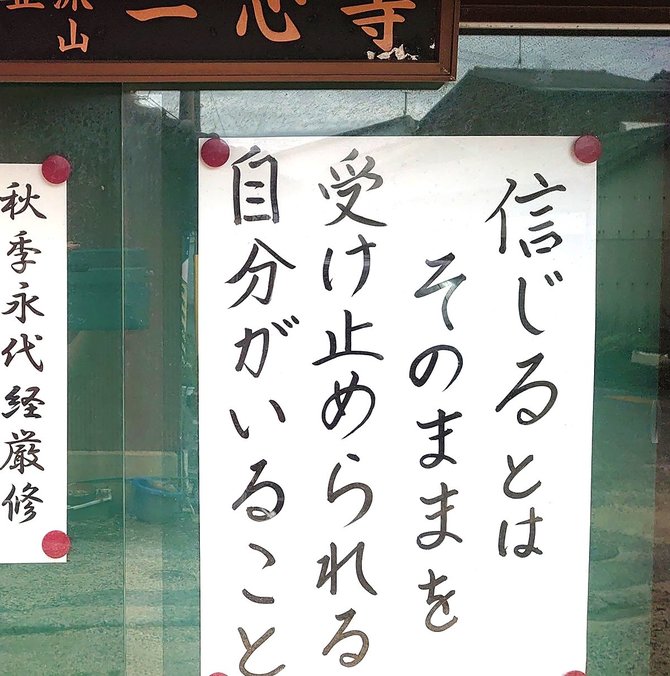 一心寺
信じるとは
そのままを
受け止められる
自分がいること
秋季永代経厳修